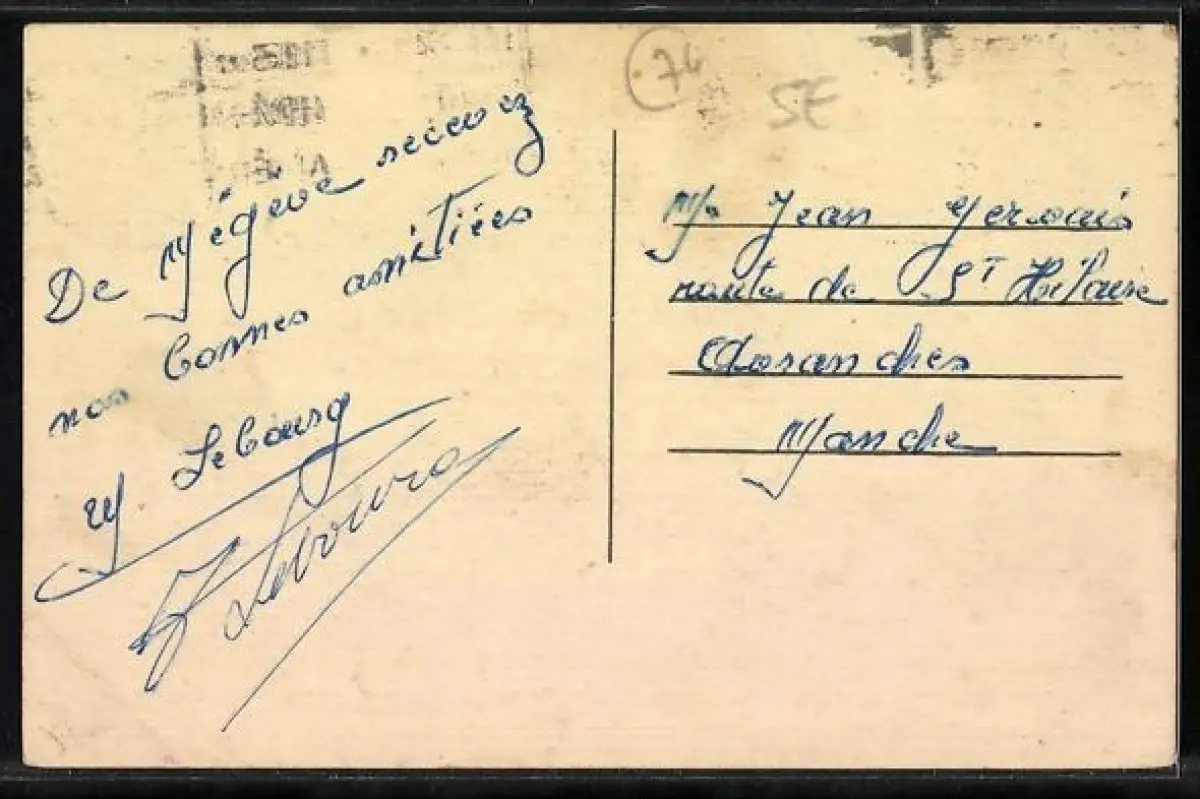 74
SE
De Mégève recevez
nos bonnes amitiées
M. Lebourg
Lebourg
Mr Jean Gervais
route de St Hilaire
Avranches
Manche